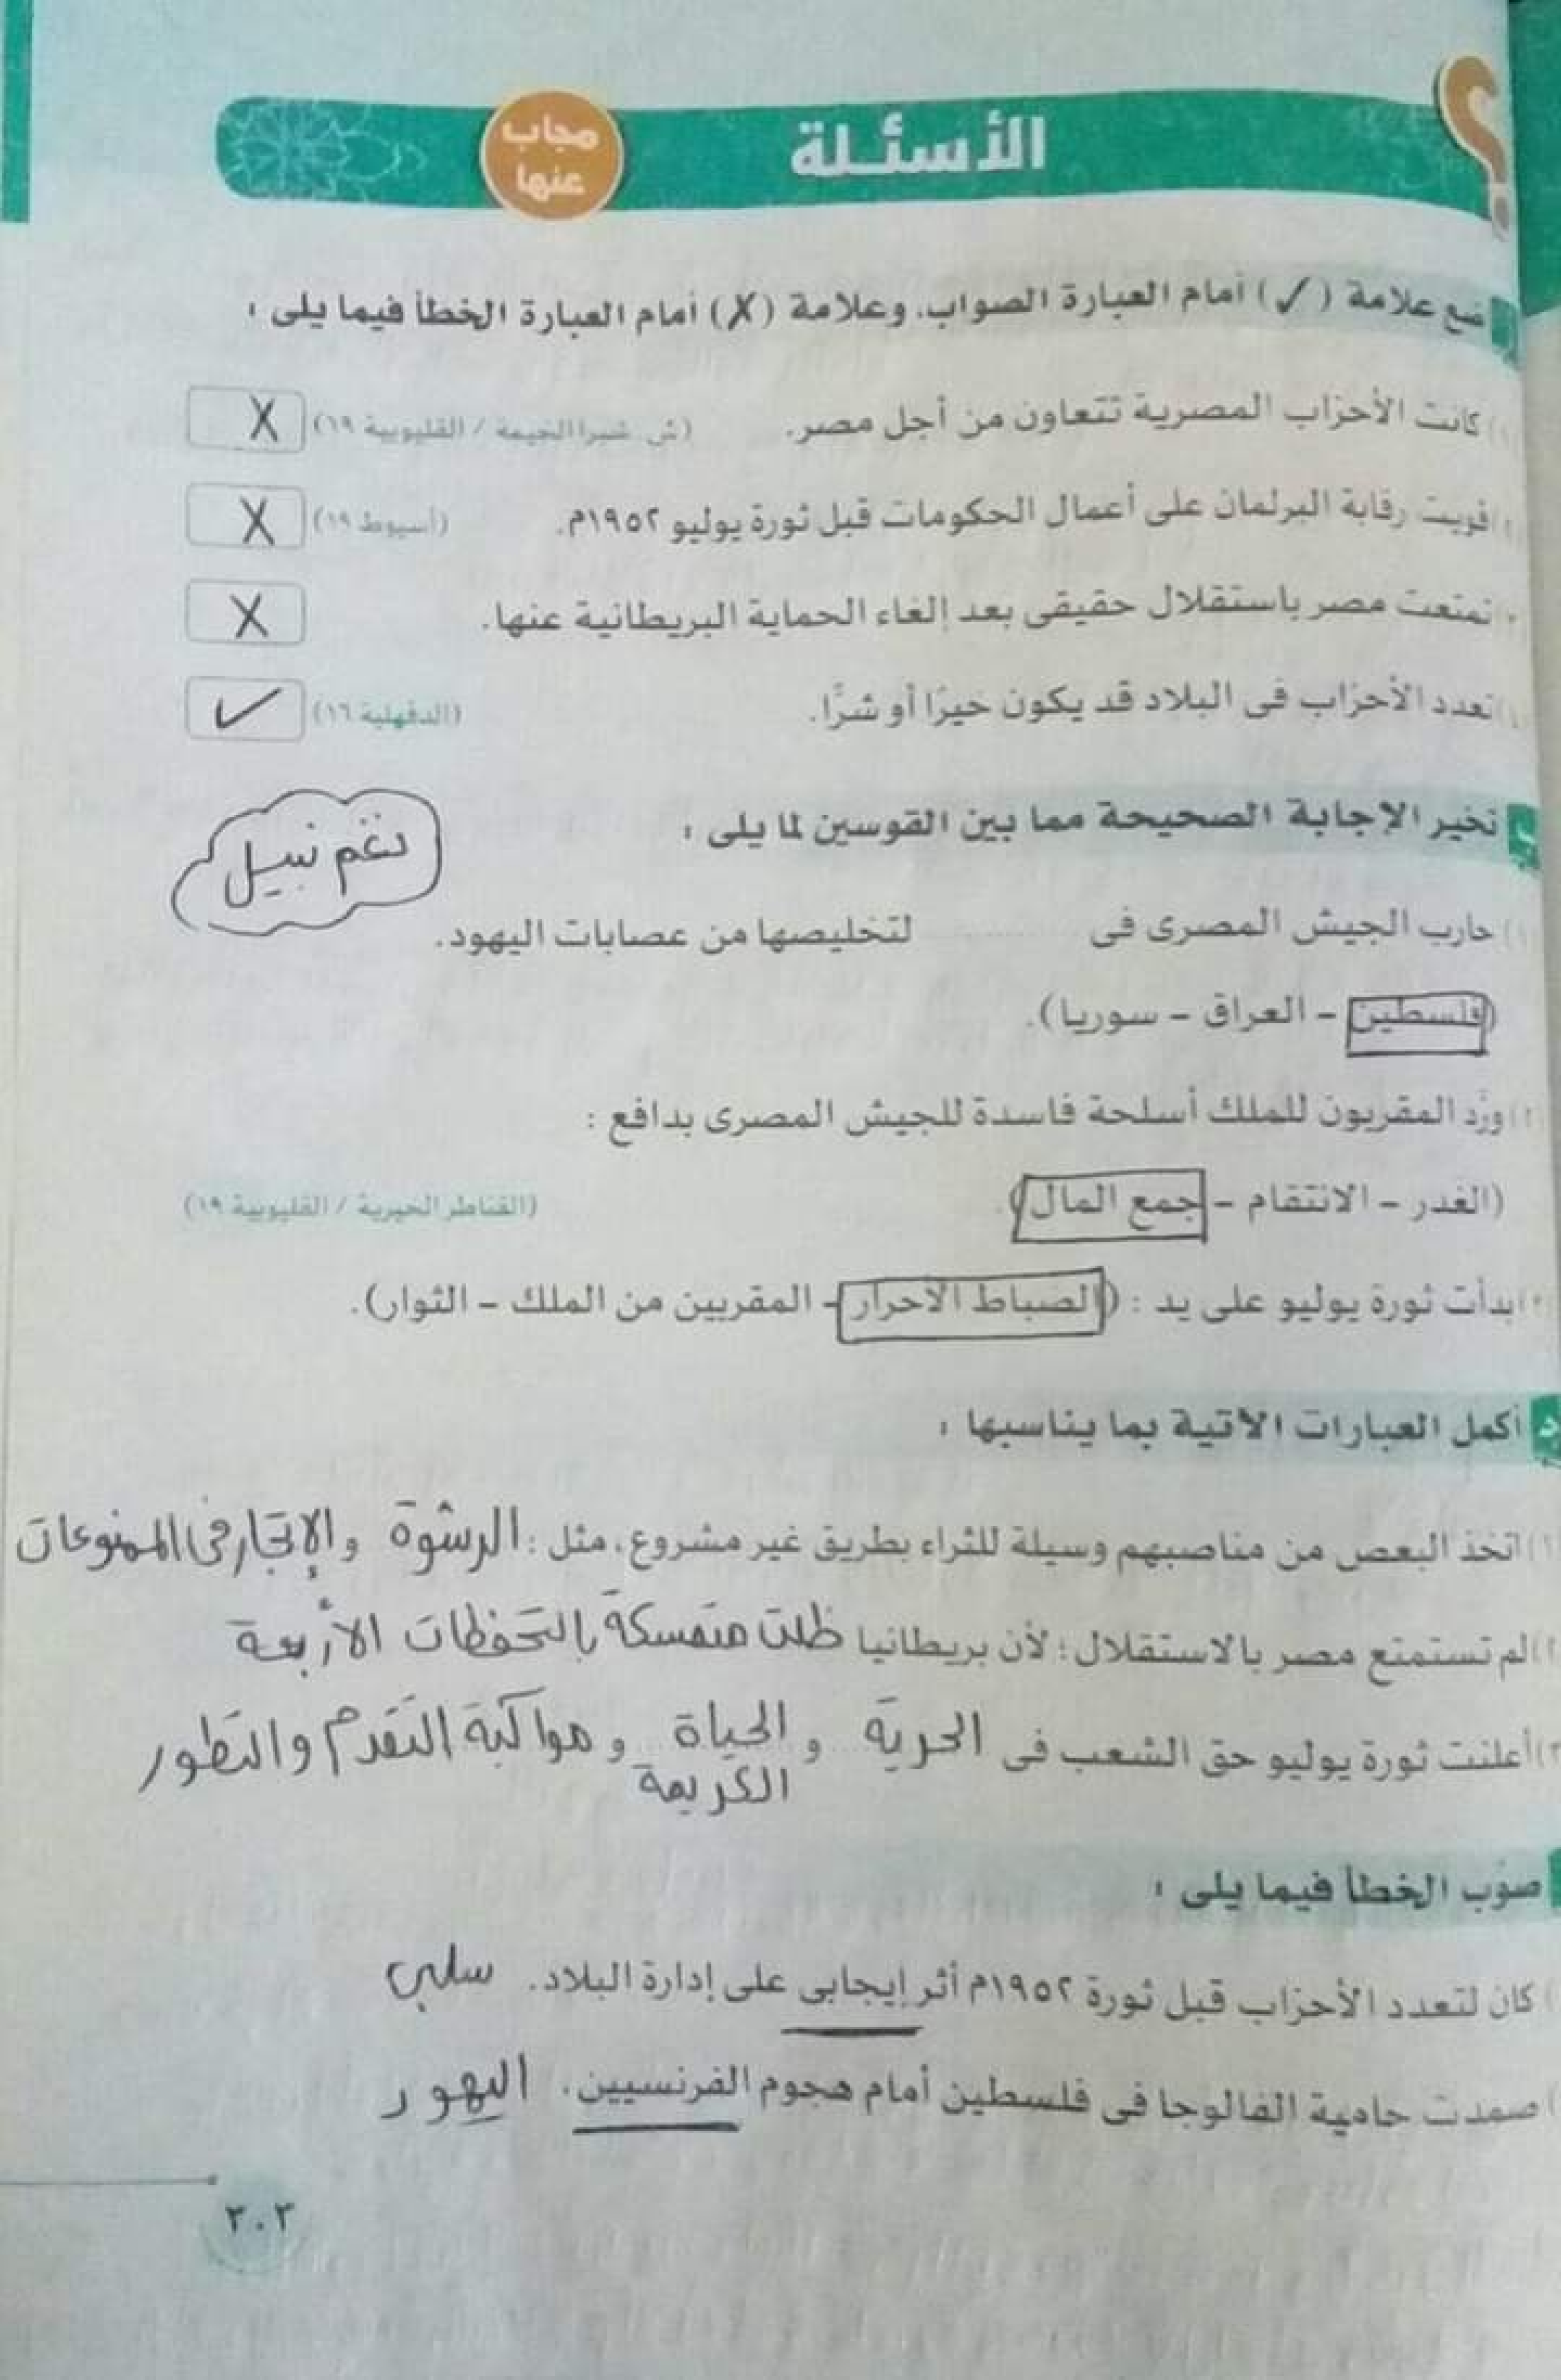 الأسئلة
مجاب
عنها
ضع علامة (✓) أمام العبارة الصواب، وعلامة (X) أمام العبارة الخطأ فيما يلى :
كانت الأحزاب المصرية تتعاون من أجل مصر. (ش. شبرا الخيمة / القليوبية ١٩) X
قويت رقابة البرلمان على أعمال الحكومات قبل ثورة يوليو ١٩٥٢م. (أسيوط ١٩) X
تمتعت مصر باستقلال حقيقى بعد إلغاء الحماية البريطانية عنها. X
تعدد الأحزاب فى البلاد قد يكون خيرًا أو شرًّا. (الدقهلية ١٦) ✓
تخير الإجابة الصحيحة مما بين القوسين لما يلى :
نغم نبيل
١) حارب الجيش المصرى فى ........ لتخليصها من عصابات اليهود.
(فلسطين - العراق - سوريا).
٢) ورَّد المقربون للملك أسلحة فاسدة للجيش المصرى بدافع :
(الغدر - الانتقام - جمع المال). (القناطر الخيرية / القليوبية ١٩)
٣) بدأت ثورة يوليو على يد : (الضباط الأحرار - المقربين من الملك - الثوار).
أكمل العبارات الآتية بما يناسبها :
١) اتخذ البعض من مناصبهم وسيلة للثراء بطريق غير مشروع، مثل : الرشوة و الإتجار فى الممنوعات
٢) لم تستمتع مصر بالاستقلال؛ لأن بريطانيا ظلت متمسكة بالتحفظات الأربعة
٣) أعلنت ثورة يوليو حق الشعب فى الحرية و الحياة و مواكبة التقدم والتطور
الكريمة
صوب الخطأ فيما يلى :
كان لتعدد الأحزاب قبل ثورة ١٩٥٢م أثر إيجابى على إدارة البلاد. سلبى
صمدت حامية الفالوجا فى فلسطين أمام هجوم الفرنسيين. اليهود
٣٠٣